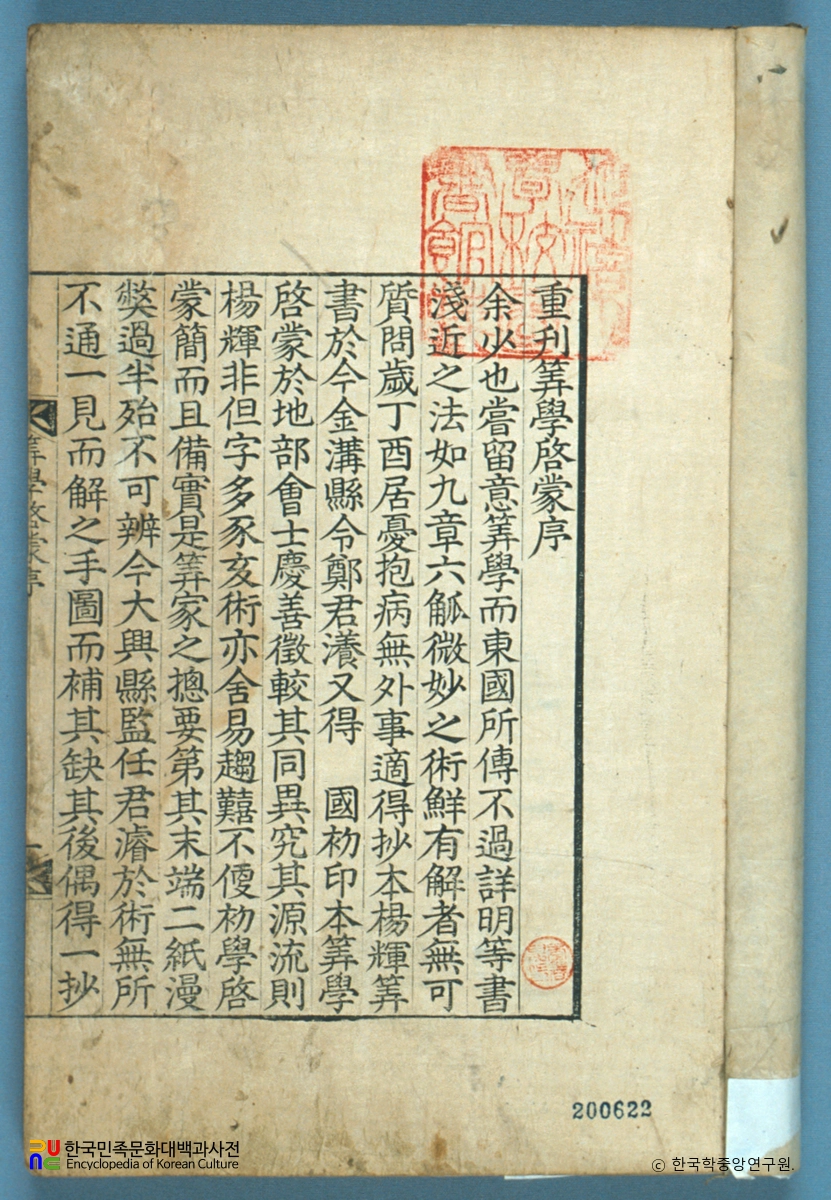 重刋筭學啓蒙序
余少也嘗留意筭學而東國所傳不過詳明等書
淺近之法如九章六觚微妙之術鮮有解者無可
質問歲丁酉居憂抱病無外事適得抄本楊輝筭
書於今金溝縣令鄭君瀁又得 國初印本筭學
啓蒙於地部會士慶善徵較其同異究其源流則
楊輝非但字多豕亥術亦舍易趨囏不便初學啓
蒙簡而且備實是筭家之摠要第其末端二紙漫
獘過半殆不可辨今大興縣監任君濬於術無所
不通一見而解之手圖而補其缺其後偶得一抄
筭學啓蒙序
一
200622
한국민족문화대백과사전
Encyclopedia of Korean Culture
© 한국학중앙연구원.